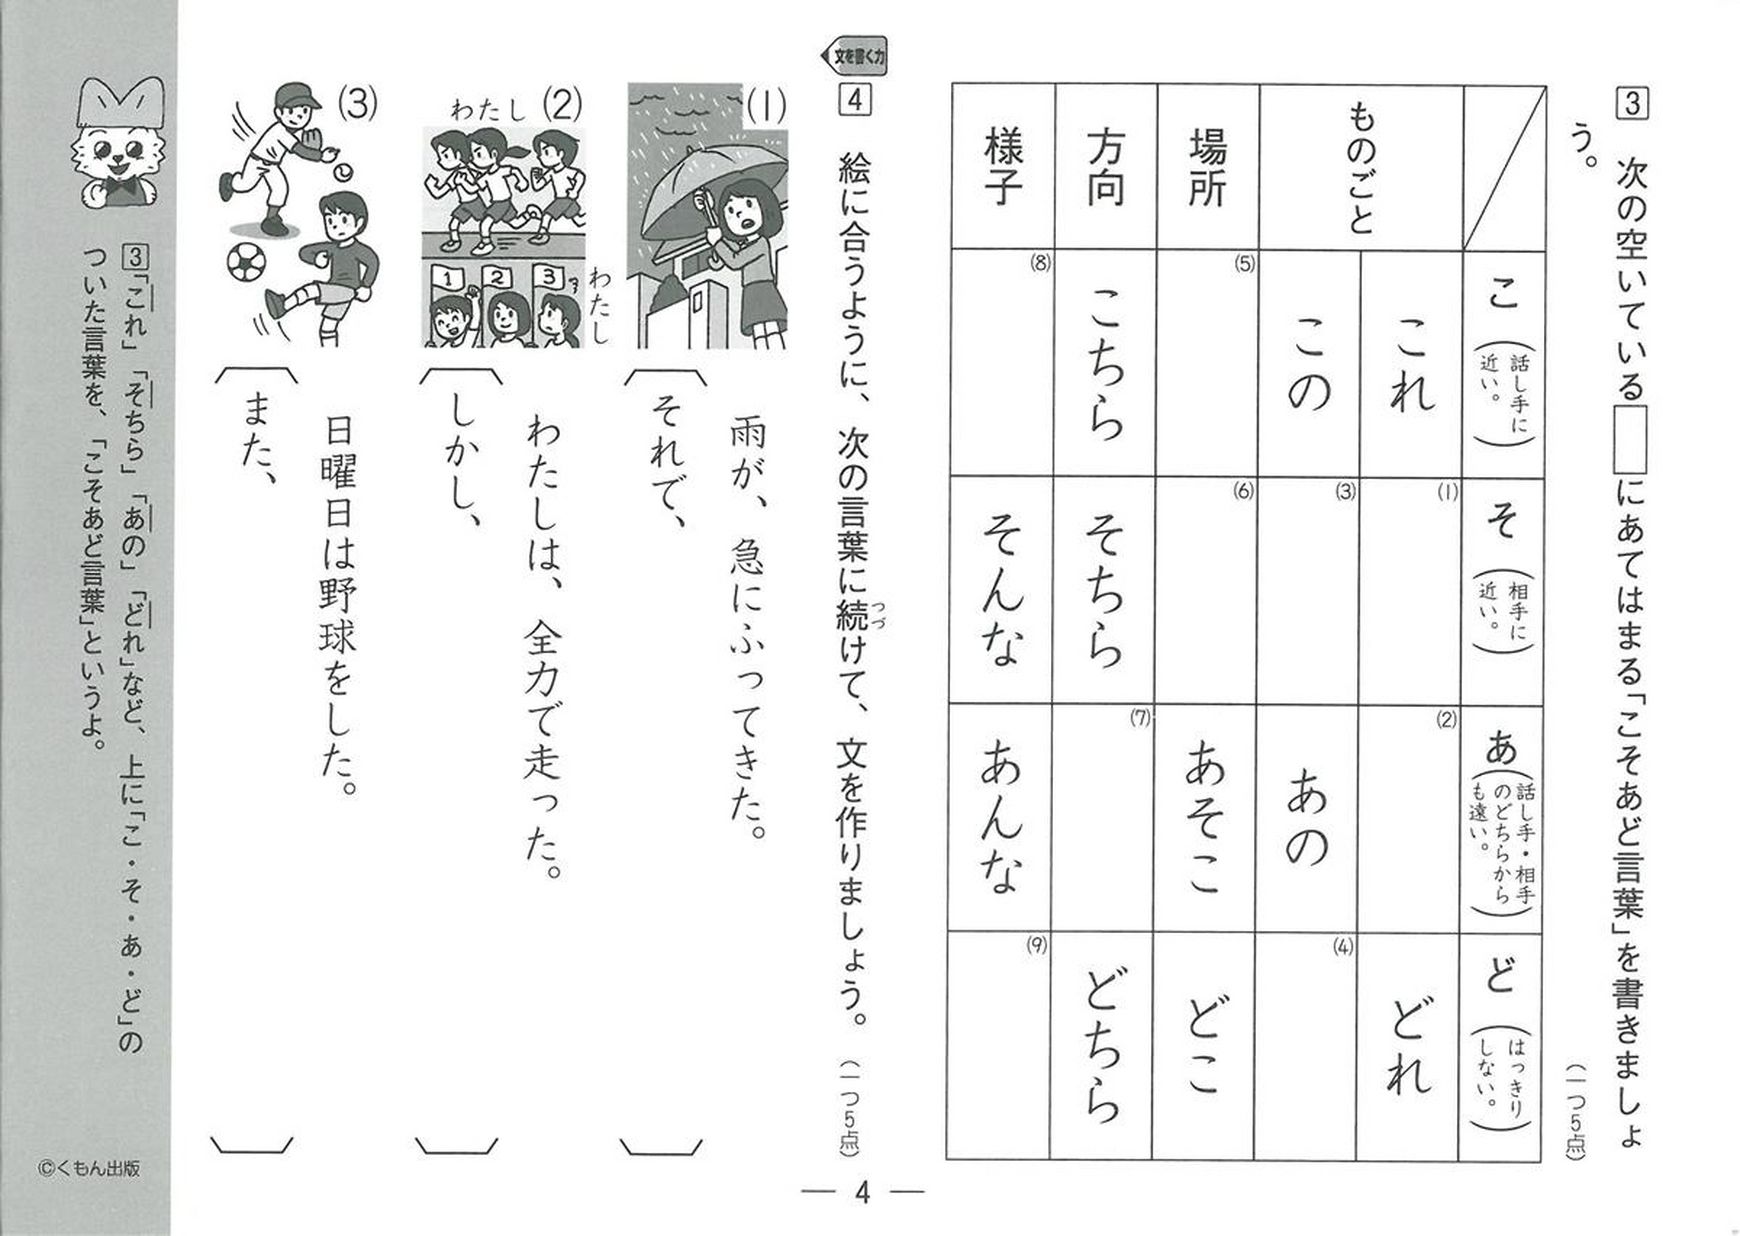 3 次の空いている□にあてはまる「こそあど言葉」を書きましょ
う。
(一つ5点)
こ(話し手に近い。)
そ(相手に近い。)
あ(話し手・相手のどちらからも遠い。)
ど(はっきりしない。)
ものごと
これ
(1)
(2)
どれ
この
(3)
あの
(4)
場所
(5)
(6)
あそこ
どこ
方向
こちら
そちら
(7)
どちら
様子
(8)
そんな
あんな
(9)
文を書く力
4 絵に合うように、次の言葉に続けて、文を作りましょう。
つづ
(一つ5点)
(1)
雨が、急にふってきた。
それで、
(2)
わたし
1 2 3
わたし
わたしは、全力で走った。
しかし、
(3)
日曜日は野球をした。
また、
3「これ」「そちら」「あの」「どれ」など、上に「こ・そ・あ・ど」の
ついた言葉を、「こそあど言葉」というよ。
©くもん出版
— 4 —